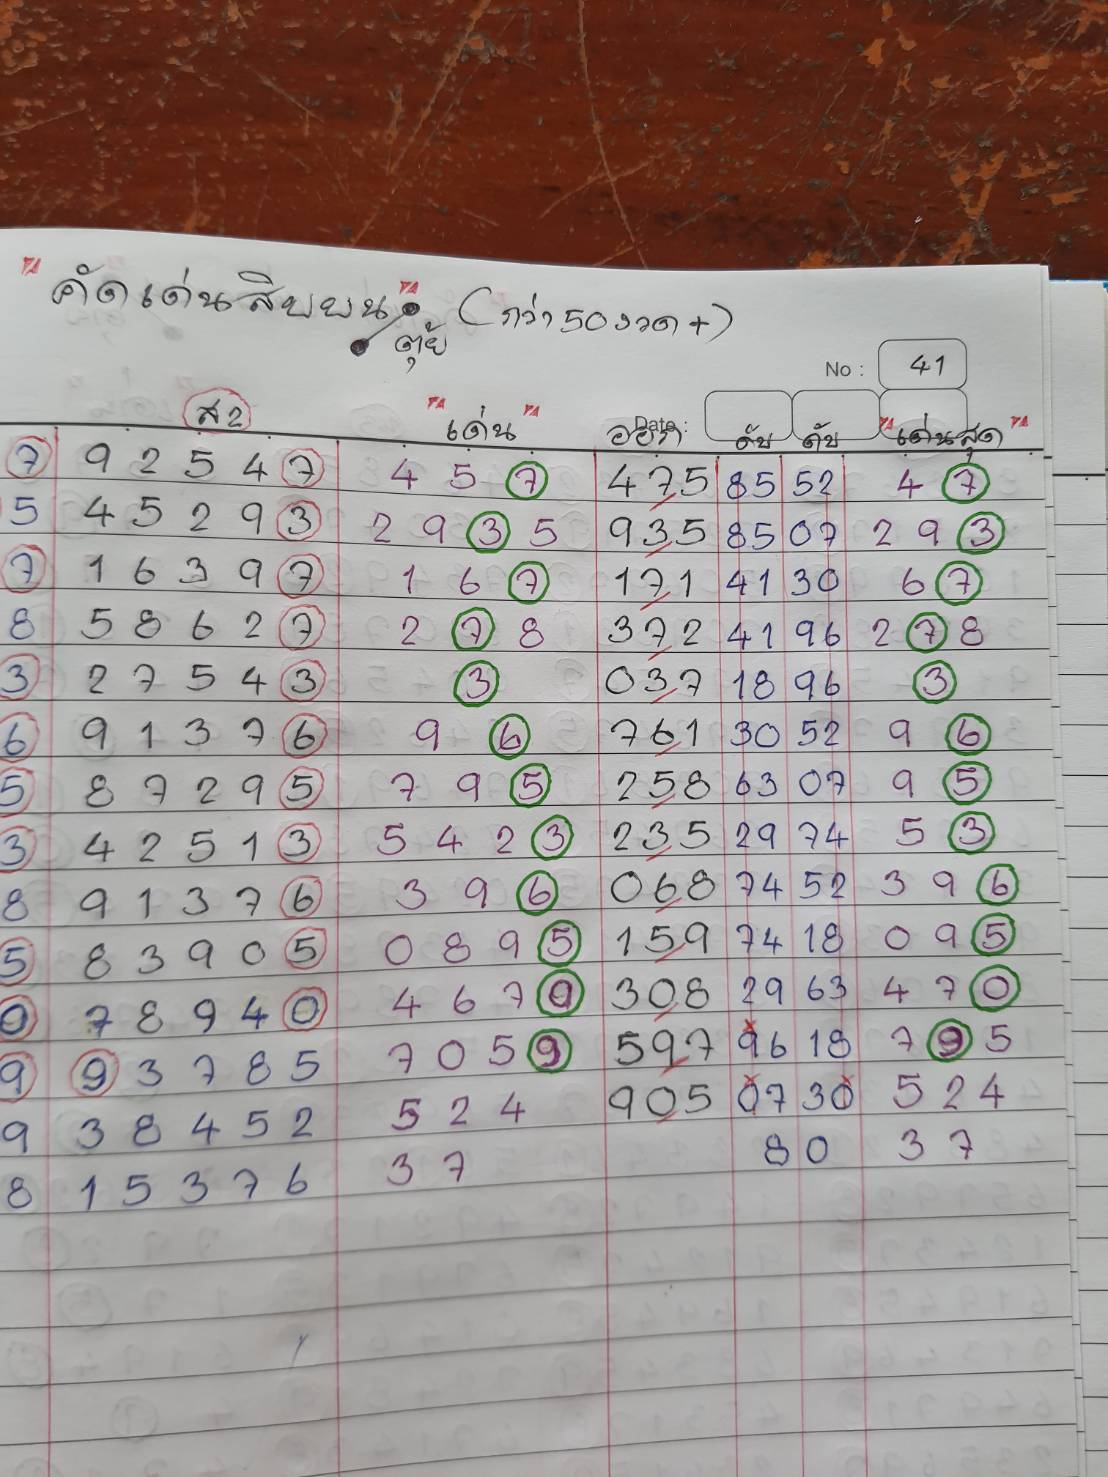 " คัดเด่นสิบบน " (กว่า 50 งวด +)
ตุ้ย
No : 41
Date :
ส2 " เด่น " ออก ดับ ดับ " เด่นสุด "
7 9 2 5 4 7 4 5 7 475 85 52 4 7
5 4 5 2 9 3 2 9 3 5 935 85 07 2 9 3
7 1 6 3 9 7 1 6 7 171 41 30 6 7
8 5 8 6 2 7 2 7 8 372 41 96 2 7 8
3 2 7 5 4 3 3 037 18 96 3
6 9 1 3 7 6 9 6 761 30 52 9 6
5 8 7 2 9 5 7 9 5 258 63 07 9 5
3 4 2 5 1 3 5 4 2 3 235 29 74 5 3
8 9 1 3 7 6 3 9 6 068 74 52 3 9 6
5 8 3 9 0 5 0 8 9 5 159 74 18 0 9 5
0 7 8 9 4 0 4 6 7 0 308 29 63 4 7 0
9 9 3 7 8 5 7 0 5 9 597 96 18 7 9 5
9 3 8 4 5 2 5 2 4 905 07 30 5 2 4
8 1 5 3 7 6 3 7 80 3 7